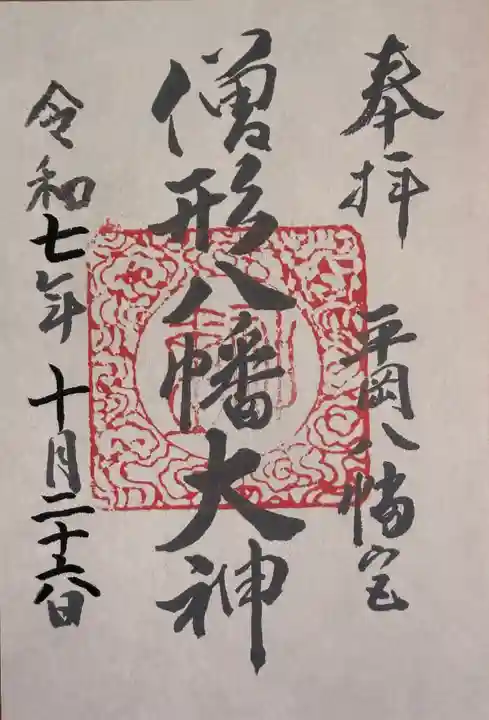 奉拝
平岡八幡宮
僧形八幡大神
令和七年十月二十六日